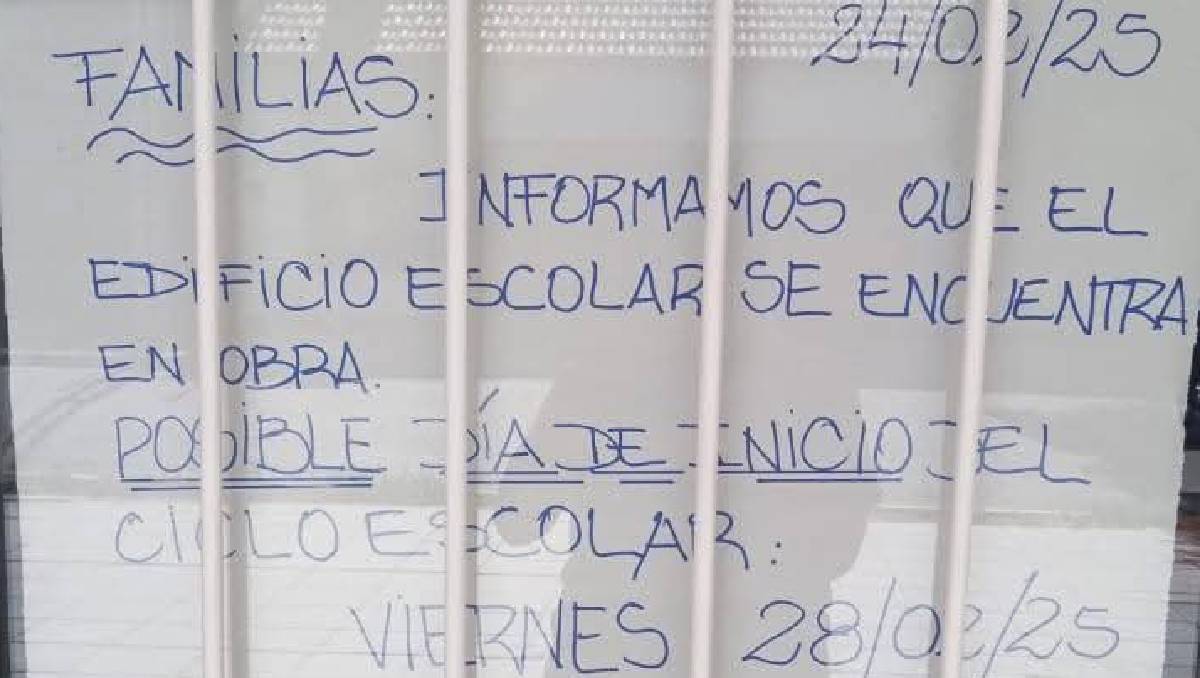 24/02/25
FAMILIAS:
INFORMAMOS QUE EL
EDIFICIO ESCOLAR SE ENCUENTRA
EN OBRA.
POSIBLE DÍA DE INICIO DEL
CICLO ESCOLAR:
VIERNES 28/02/25